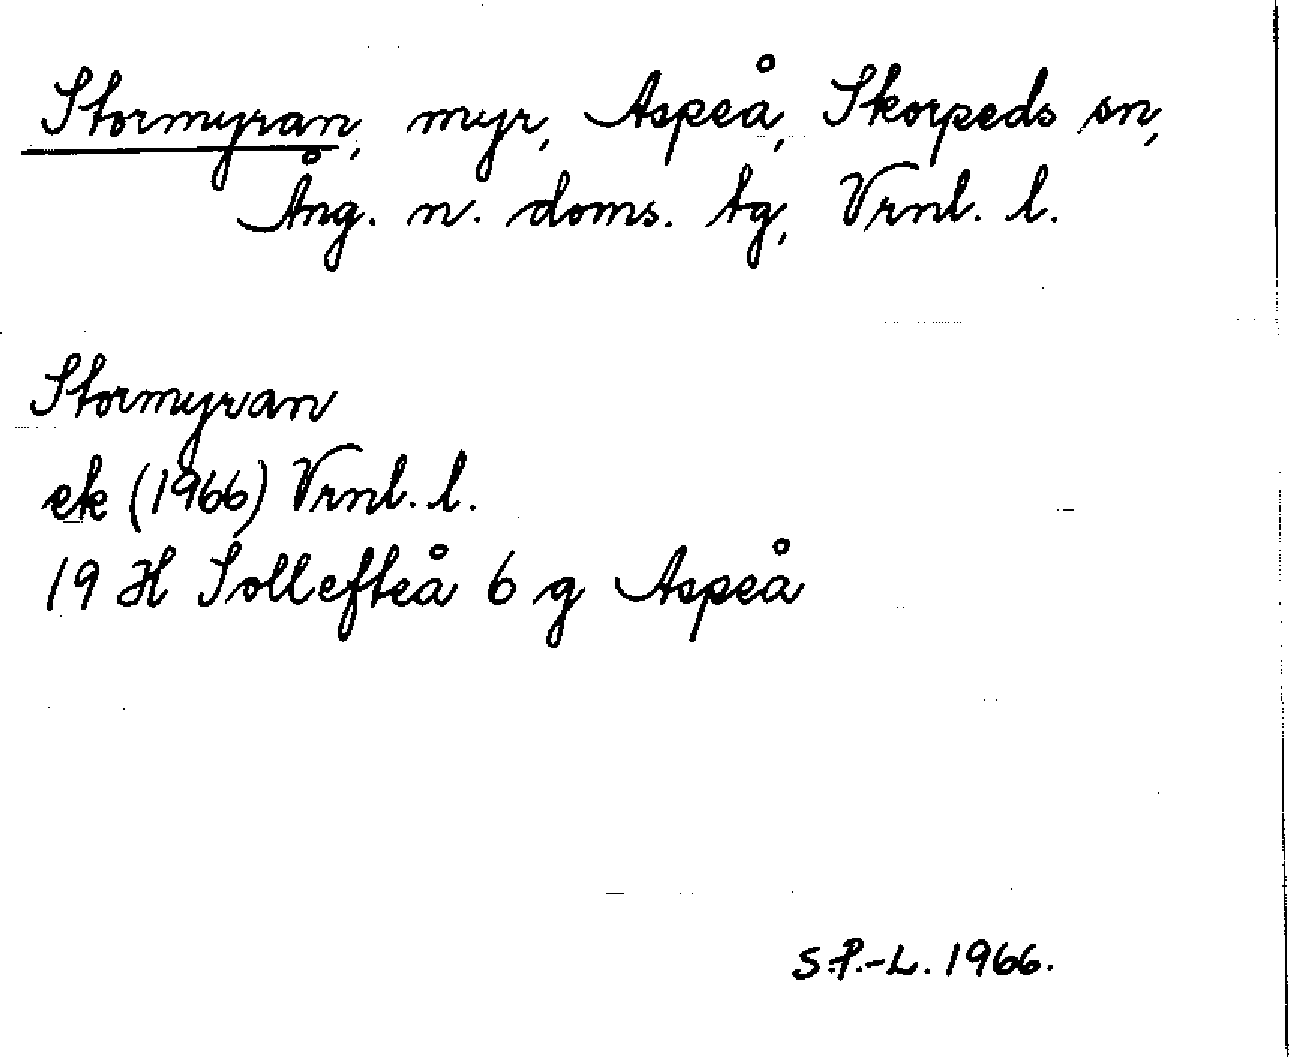 Stormyran, myr, Aspeå, Skorpeds sn,
Ång. n. doms. tg, Vrnl. l.
Stormyran
ek (1966) Vrnl. l.
19 H Sollefteå 6 g Aspeå
S.P.-L. 1966.